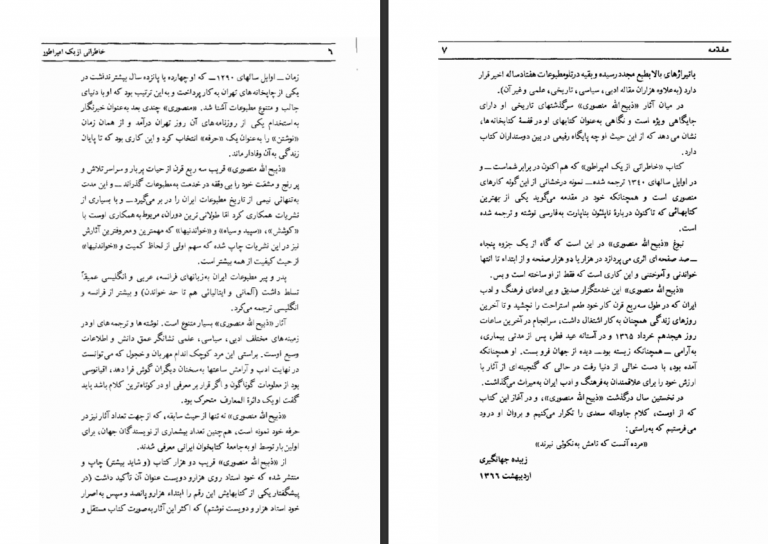 خاطراتی از یک امپراطور
٦
زمان ــ اوایل سالهای ۱۲۹۰ــ که او چهارده یا پانزده سال بیشتر نداشت در
یکی از چاپخانه‌های تهران به کار پرداخت و به این ترتیب بود که او با دنیای
جالب و متنوع مطبوعات آشنا شد. «منصوری» چندی بعد به‌عنوان خبرنگار
به‌استخدام یکی از روزنامه‌های آن روز تهران درآمد و از همان زمان
«نوشتن» را به‌عنوان یک «حرفه» انتخاب کرد و این کاری بود که تا پایان
زندگی به آن وفادار ماند.
«ذبیح الله منصوری» قریب سه ربع قرن از حیات پربار و سراسر تلاش و
پر رنج و مشقت خود را بی‌وقفه در خدمت به مطبوعات گذراند ــ و این مدت
به‌تنهائی نیمی از تاریخ مطبوعات ایران را در بر می‌گیرد ــ و با بسیاری از
نشریات همکاری کرد اما طولانی ترین دوران، مربوط به همکاری اوست با
«کوشش»، «سپید و سیاه» و «خواندنیها» که مهمترین و معروفترین آثارش
نیز در این نشریات چاپ شده که سهم اولی از لحاظ کمیت و «خواندنیها»
از حیث کیفیت از همه بیشتر است.
پدر و پیر مطبوعات ایران به‌زبانهای فرانسه، عربی و انگلیسی عمیقاً
تسلط داشت (آلمانی و ایتالیائی هم تا حد خواندن) و بیشتر از فرانسه و
انگلیسی ترجمه می‌کرد.
آثار «ذبیح الله منصوری» بسیار متنوع است. نوشته‌ها و ترجمه های او در
زمینه‌های مختلف ادبی، سیاسی، علمی نشانگر عمق دانش و اطلاعات
وسیع اوست. براستی این مرد کوچک اندام مهربان و خجول که می‌توانست
در نهایت ادب و آرامش ساعتها به‌سخنان دیگران گوش فرا دهد، اقیانوسی
بود از معلومات گوناگون و اگر قرار بر معرفی او در کوتاه‌ترین کلام باشد باید
گفت او یک دائرة المعارف متحرک بود.
«ذبیح الله منصوری» نه تنها از حیث سابقه، که از جهت تعداد آثار نیز در
حرفه خود نمونه است، هم‌چنین تعداد بیشماری از نویسندگان جهان، برای
اولین بار توسط او به جامعهٔ کتابخوان ایرانی معرفی شدند.
از «ذبیح الله منصوری» قریب دو هزار کتاب (و شاید بیشتر) چاپ و
منتشر شده که خود استاد روی هزار و دویست عنوان آن تأکید داشت (در
پیشگفتار یکی از کتابهایش این رقم را ابتداء هزار و پانصد و سپس به اصرار
خود استاد هزار و دویست نوشتم) که اکثر این آثار به‌صورت کتاب مستقل و
مقدمه
۷
با تیراژهای بالا بطبع مجدد رسیده و بقیه در تلو مطبوعات هفتاد ساله اخیر قرار
دارد (به‌علاوه هزاران مقاله ادبی، سیاسی، تاریخی، علمی و غیر آن).
در میان آثار «ذبیح الله منصوری» سرگذشتهای تاریخی او دارای
جایگاهی ویژه است و نگاهی به‌عنوان کتابهای او در قفسهٔ کتابخانه‌ها،
نشان می دهد که از این حیث او چه پایگاه رفیعی در بین دوستداران کتاب
دارد.
کتاب «خاطراتی از یک امپراطور» که هم اکنون در برابر شماست ــ و
در اوایل سالهای ۱۳۴۰ ترجمه شده ــ نمونه درخشانی از این گونه کارهای
منصوری است و همچنانکه خود در مقدمه می‌گوید یکی از بهترین
کتابهائی که تا کنون درباره ناپلئون بناپارت به‌فارسی نوشته و ترجمه شده
است.
نبوغ «ذبیح الله منصوری» در این است که گاه از یک جزوه پنجاه
ــ صد صفحه ای اثری می‌پردازد در هزار یا دو هزار صفحه و از ابتداء تا انتها
خواندنی و آموختنی و این کاری است که فقط از او ساخته است و بس.
«ذبیح الله منصوری» این خدمتگزار صدیق و بی ادعای فرهنگ و ادب
ایران که در طول سه ربع قرن کار خود طعم استراحت را نچشید و تا آخرین
روزهای زندگی همچنان به کار اشتغال داشت، سرانجام در آخرین ساعات
روز هیجدهم خرداد ۱۳۶۵ و در آستانه عید فطر، پس از مدتی بیماری،
به‌آرامی ــ همچنانکه زیسته بود ــ دیده از جهان فرو بست. او همچنانکه
آمده بود، با دست خالی از دنیا رفت در حالی که گنجینه‌ای از آثار با
ارزش خود را برای علاقمندان به‌فرهنگ و ادب ایران به‌میراث می‌گذاشت.
در نخستین سال درگذشت «ذبیح الله منصوری»، و در آغاز این کتاب
که از اوست، کلام جاودانه سعدی را تکرار می‌کنیم و بر روان او درود
می فرستیم که به‌راستی:
«مرده آنست که نامش به‌نکوئی نبرند»
زبیده جهانگیری
اردیبهشت ۱۳۶۶